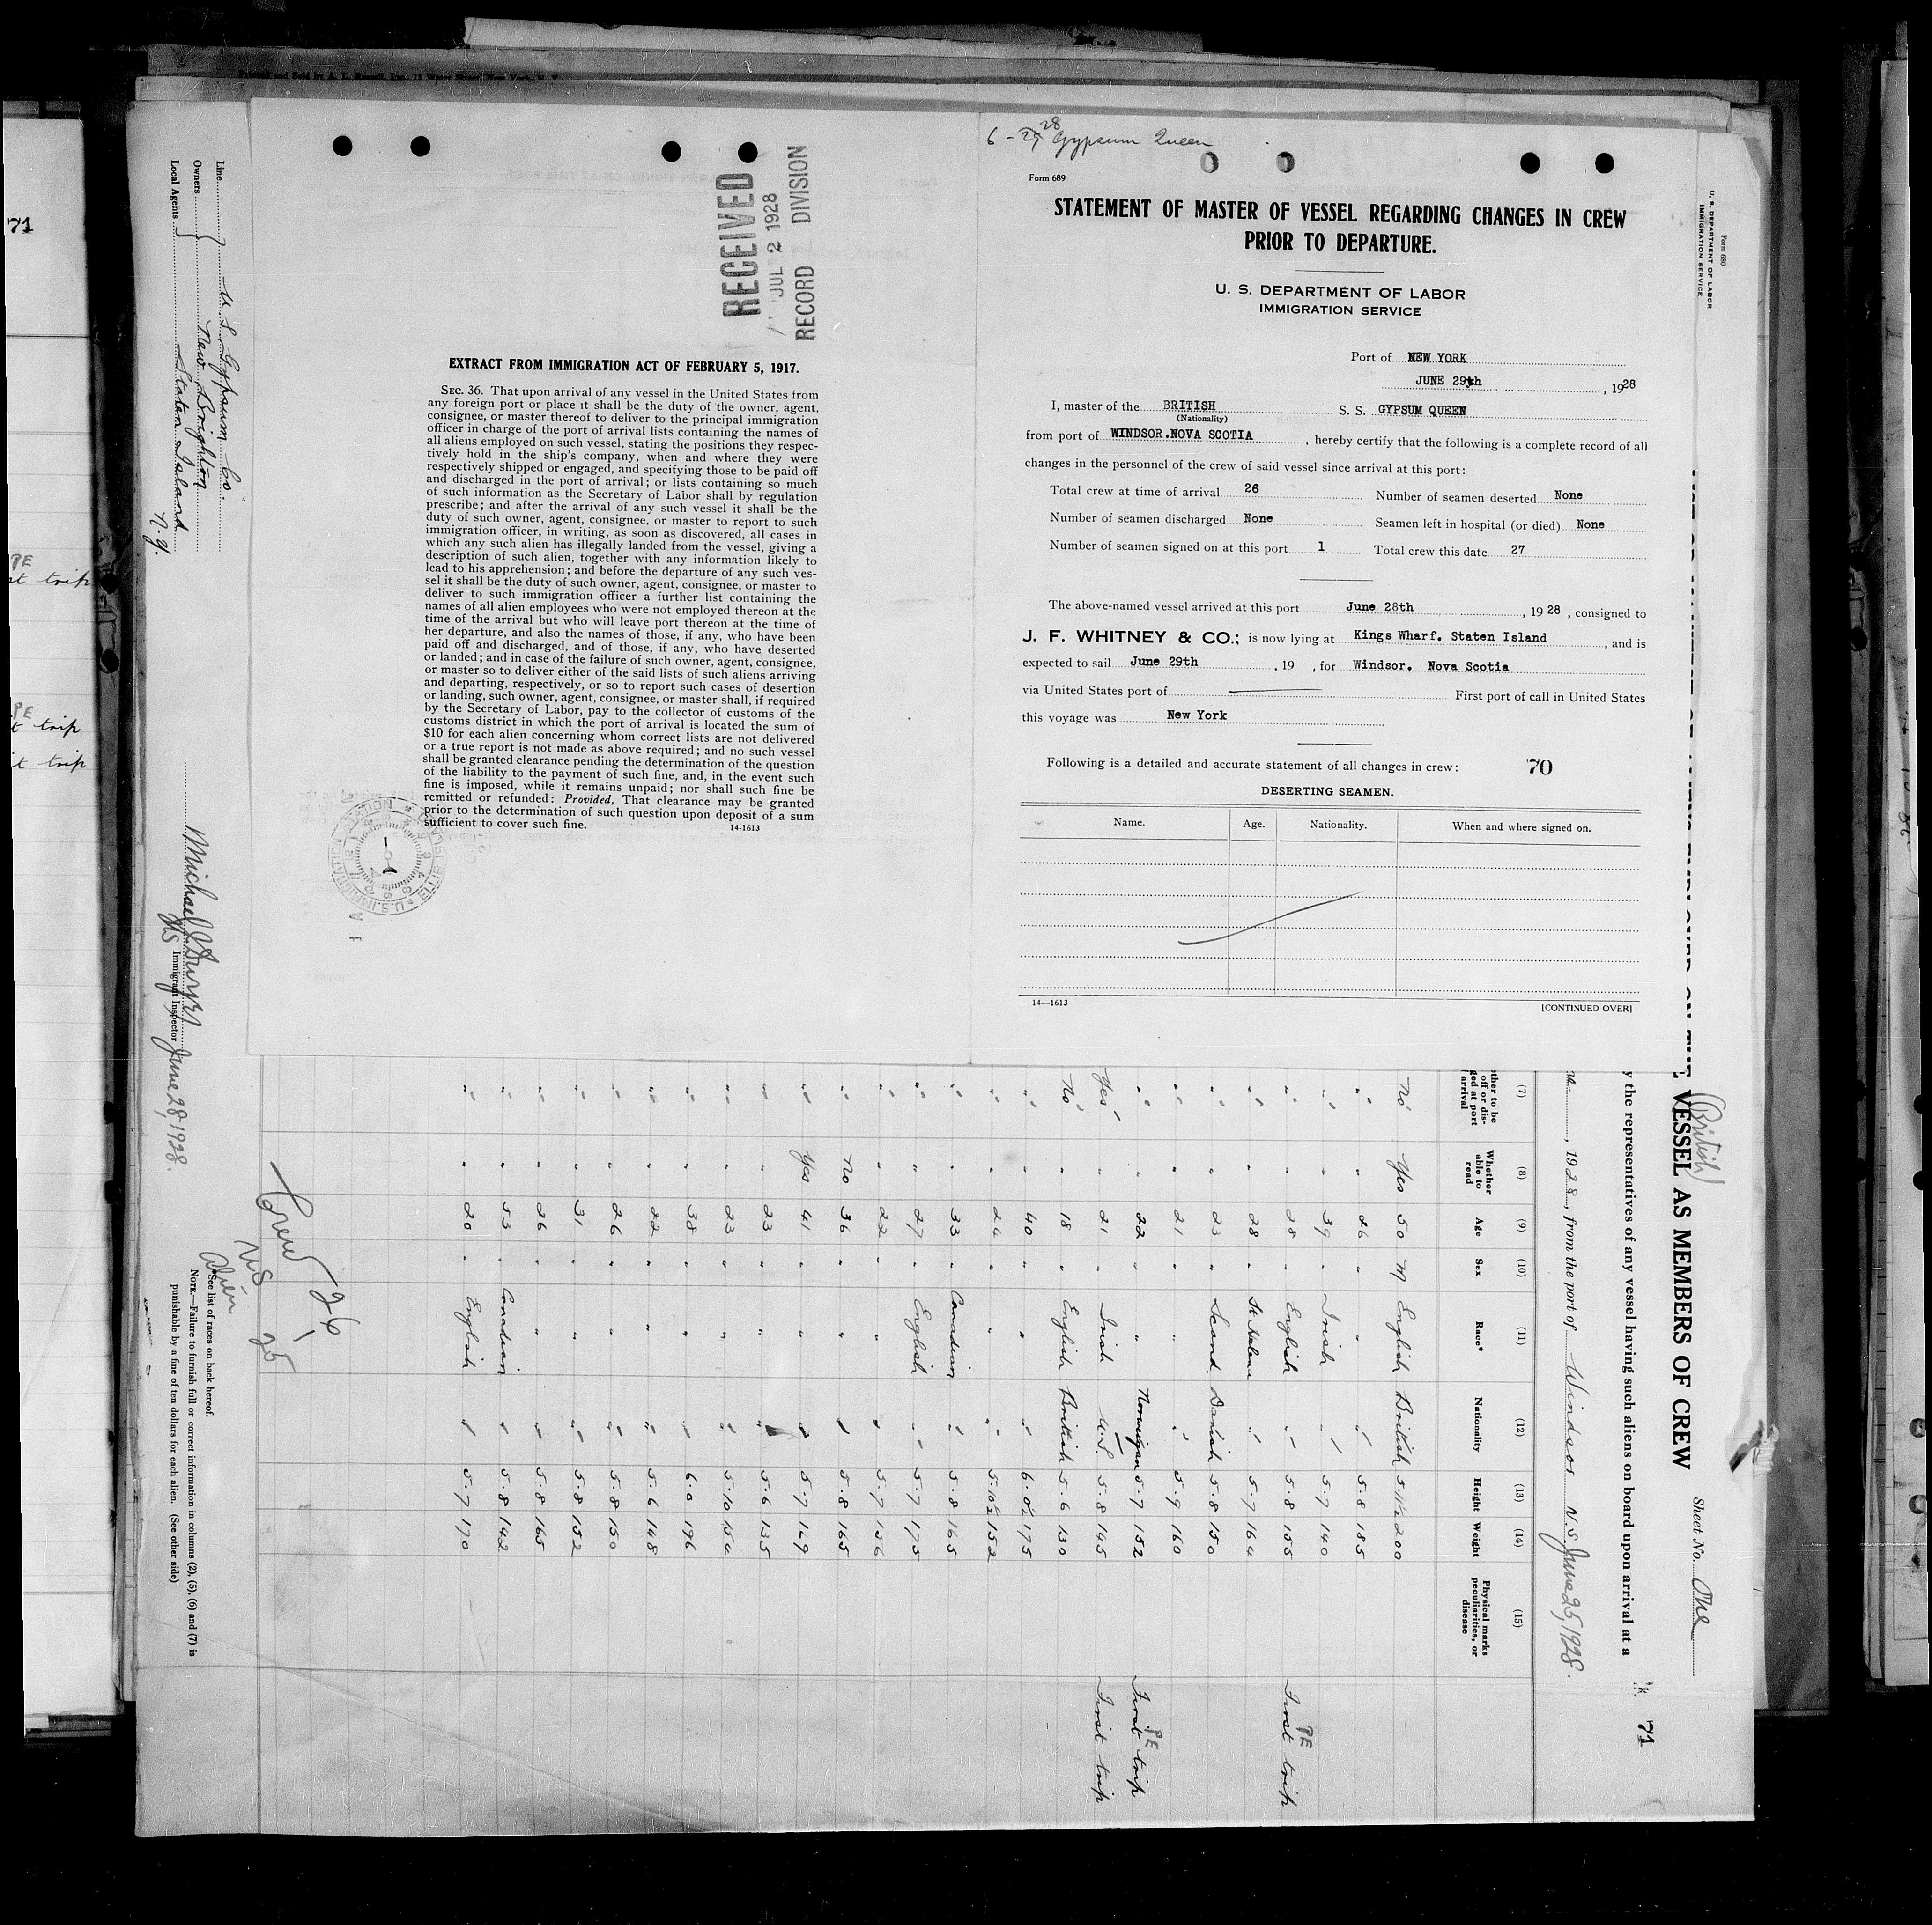 Printed and Sold by A. L. Russell, Inc., 12 Water Street, New York, N. Y.
6-29 28 Gypsum Queen
Form 689
STATEMENT OF MASTER OF VESSEL REGARDING CHANGES IN CREW
PRIOR TO DEPARTURE.
U. S. DEPARTMENT OF LABOR
IMMIGRATION SERVICE
Port of NEW YORK
JUNE 29th, 1928
I, master of the BRITISH S. S. GYPSUM QUEEN
(Nationality)
from port of WINDSOR.NOVA SCOTIA, hereby certify that the following is a complete record of all
changes in the personnel of the crew of said vessel since arrival at this port:
Total crew at time of arrival 26 Number of seamen deserted None
Number of seamen discharged None Seamen left in hospital (or died) None
Number of seamen signed on at this port 1 Total crew this date 27
The above-named vessel arrived at this port June 28th, 1928, consigned to
J. F. WHITNEY & CO.; is now lying at Kings Wharf. Staten Island, and is
expected to sail June 29th, 19 , for Windsor. Nova Scotia
via United States port of First port of call in United States
this voyage was New York
Following is a detailed and accurate statement of all changes in crew: 70
DESERTING SEAMEN.
Name. Age. Nationality. When and where signed on.
14—1613 [CONTINUED OVER]
RECEIVED
JUL 2 1928
RECORD DIVISION
EXTRACT FROM IMMIGRATION ACT OF FEBRUARY 5, 1917.
SEC. 36. That upon arrival of any vessel in the United States from
any foreign port or place it shall be the duty of the owner, agent,
consignee, or master thereof to deliver to the principal immigration
officer in charge of the port of arrival lists containing the names of
all aliens employed on such vessel, stating the positions they respec-
tively hold in the ship's company, when and where they were
respectively shipped or engaged, and specifying those to be paid off
and discharged in the port of arrival; or lists containing so much
of such information as the Secretary of Labor shall by regulation
prescribe; and after the arrival of any such vessel it shall be the
duty of such owner, agent, consignee, or master to report to such
immigration officer, in writing, as soon as discovered, all cases in
which any such alien has illegally landed from the vessel, giving a
description of such alien, together with any information likely to
lead to his apprehension; and before the departure of any such ves-
sel it shall be the duty of such owner, agent, consignee, or master to
deliver to such immigration officer a further list containing the
names of all alien employees who were not employed thereon at the
time of the arrival but who will leave port thereon at the time of
her departure, and also the names of those, if any, who have been
paid off and discharged, and of those, if any, who have deserted
or landed; and in case of the failure of such owner, agent, consignee,
or master so to deliver either of the said lists of such aliens arriving
and departing, respectively, or so to report such cases of desertion
or landing, such owner, agent, consignee, or master shall, if required
by the Secretary of Labor, pay to the collector of customs of the
customs district in which the port of arrival is located the sum of
$10 for each alien concerning whom correct lists are not delivered
or a true report is not made as above required; and no such vessel
shall be granted clearance pending the determination of the question
of the liability to the payment of such fine, and, in the event such
fine is imposed, while it remains unpaid; nor shall such fine be
remitted or refunded: Provided, That clearance may be granted
prior to the determination of such question upon deposit of a sum
sufficient to cover such fine.
14-1613
Form 680
U. S. DEPARTMENT OF LABOR
IMMIGRATION SERVICE
(British)
VESSEL AS MEMBERS OF CREW
Sheet No. One
y the representatives of any vessel having such aliens on board upon arrival at a
71
, 1928, from the port of Windsor N.S. June 25, 1928.
(7) (8) (9) (10) (11) (12) (13) (14) (15)
Whether able to read Age Sex Race* Nationality Height Weight Physical marks peculiarities, or disease
No Yes 50 M English British 5.11½ 200
" " 26 " " " 5.8 185
" " 39 " Irish " 5.7 140
" " 28 " English " 5.8 155 First trip PE
" " 28 " St. Helena " 5.7 164
" " 23 " Scand. Danish 5.8 150
" " 21 " " " 5.9 160
" " 22 " " Norwegian 5.7 152 First trip PE
Yes " 21 " Irish U.S. 5.8 145 First trip
No " 18 " English British 5.6 130
" " 40 " " " 6.0½ 175
" " 24 " " " 5.10½ 152
" " 33 " Canadian " 5.8 165
" " 27 " English " 5.7 175
" " 22 " " " 5.7 156
" No 36 " " " 5.8 165
" Yes 41 " " " 5.7 149
" " 23 " " " 5.6 135
" " 23 " " " 5.10 154
" " 38 " " " 6.0 196
" " 22 " " " 5.6 148
" " 26 " " " 5.8 150
" " 31 " " " 5.8 152
" " 26 " " " 5.8 165
" " 53 " Canadian " 5.8 142
" " 20 " English " 5.7 170
Crew 26
US 1
Alien 25
*See list of races on back hereof.
NOTE.—Failure to furnish full or correct information in columns (2), (5), (6) and (7) is
punishable by a fine of ten dollars for each alien. (See other side)
Line U. S. Gypsum Co.
Owners New Brighton
Local Agents Staten Island N.Y.
Immigrant Inspector June 28, 1928.
71
PE
st trip
PE
t trip
t trip